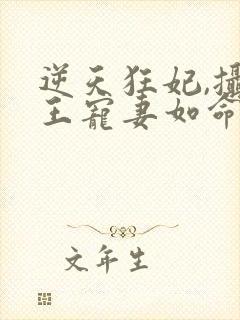 逆天狂妃,攝
王寵妻如命
文年生